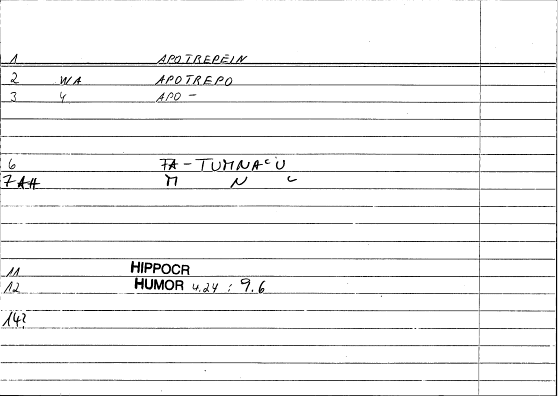 1 APOTREPEIN
2 WA APOTREPO
3 4 APO -
6 FA - TUMNAᶜU
7 AH M N ᶜ
11 HIPPOCR
12 HUMOR 4.24 : 9.6
14?